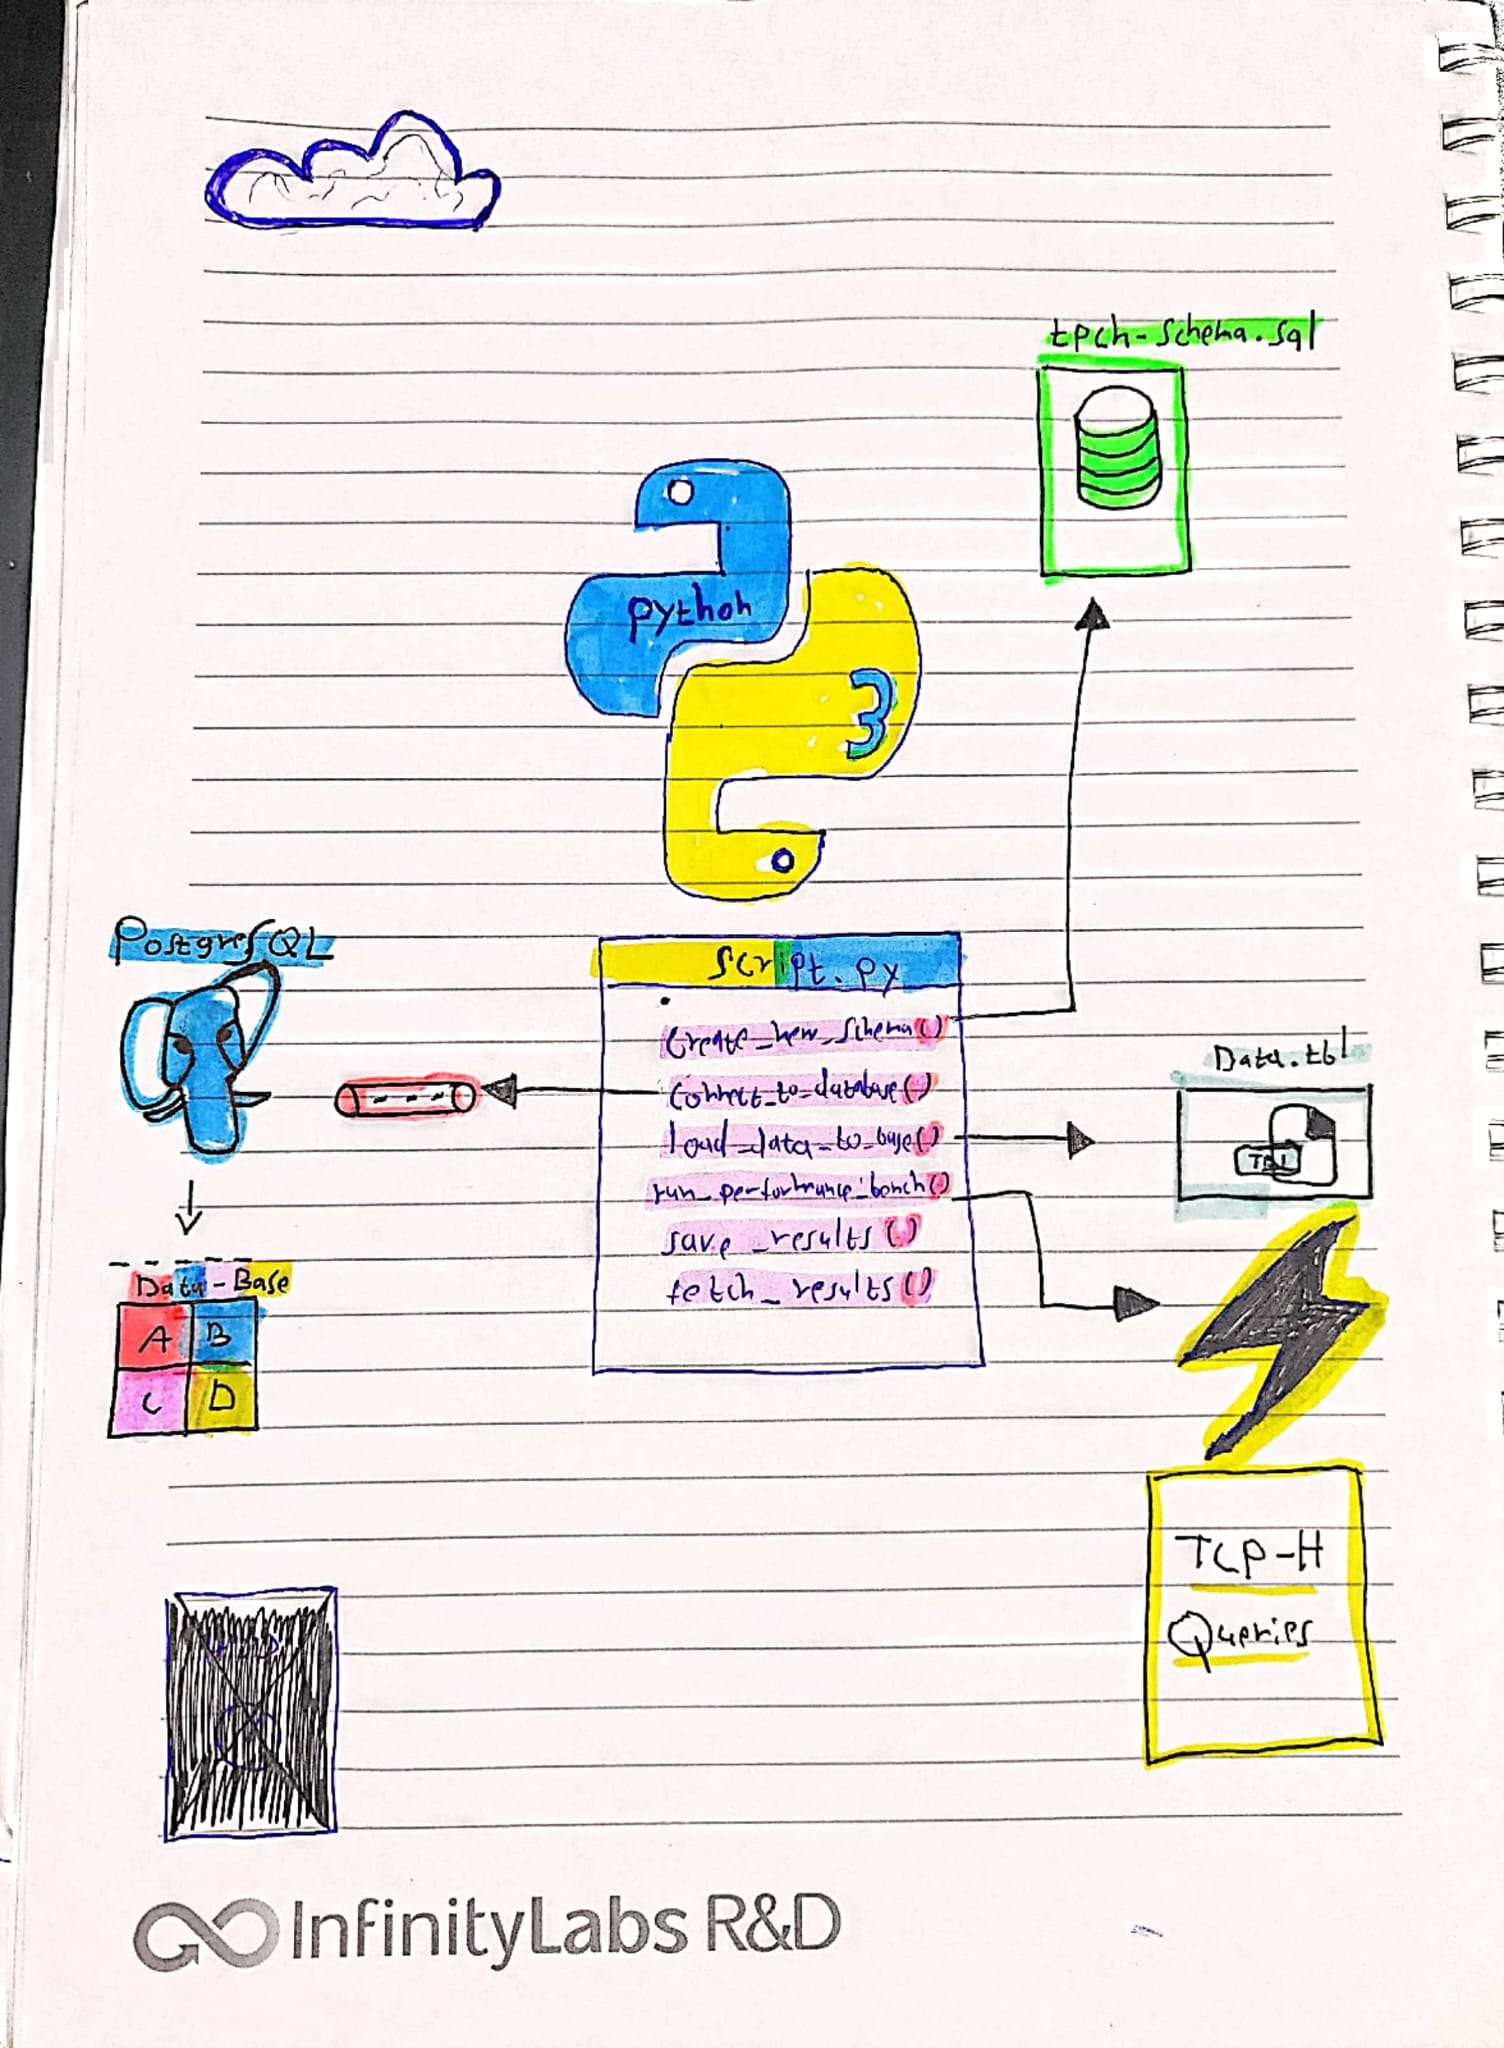 tpch-schema.sql
python
3
PostgresQL
script.py
create_new_schema()
connect_to_database()
load_data_to_base()
run_performance_bench()
save_results()
fetch_results()
Data.tbl
TBL
Data-Base
A B
C D
TCP-H
Queries
InfinityLabs R&D